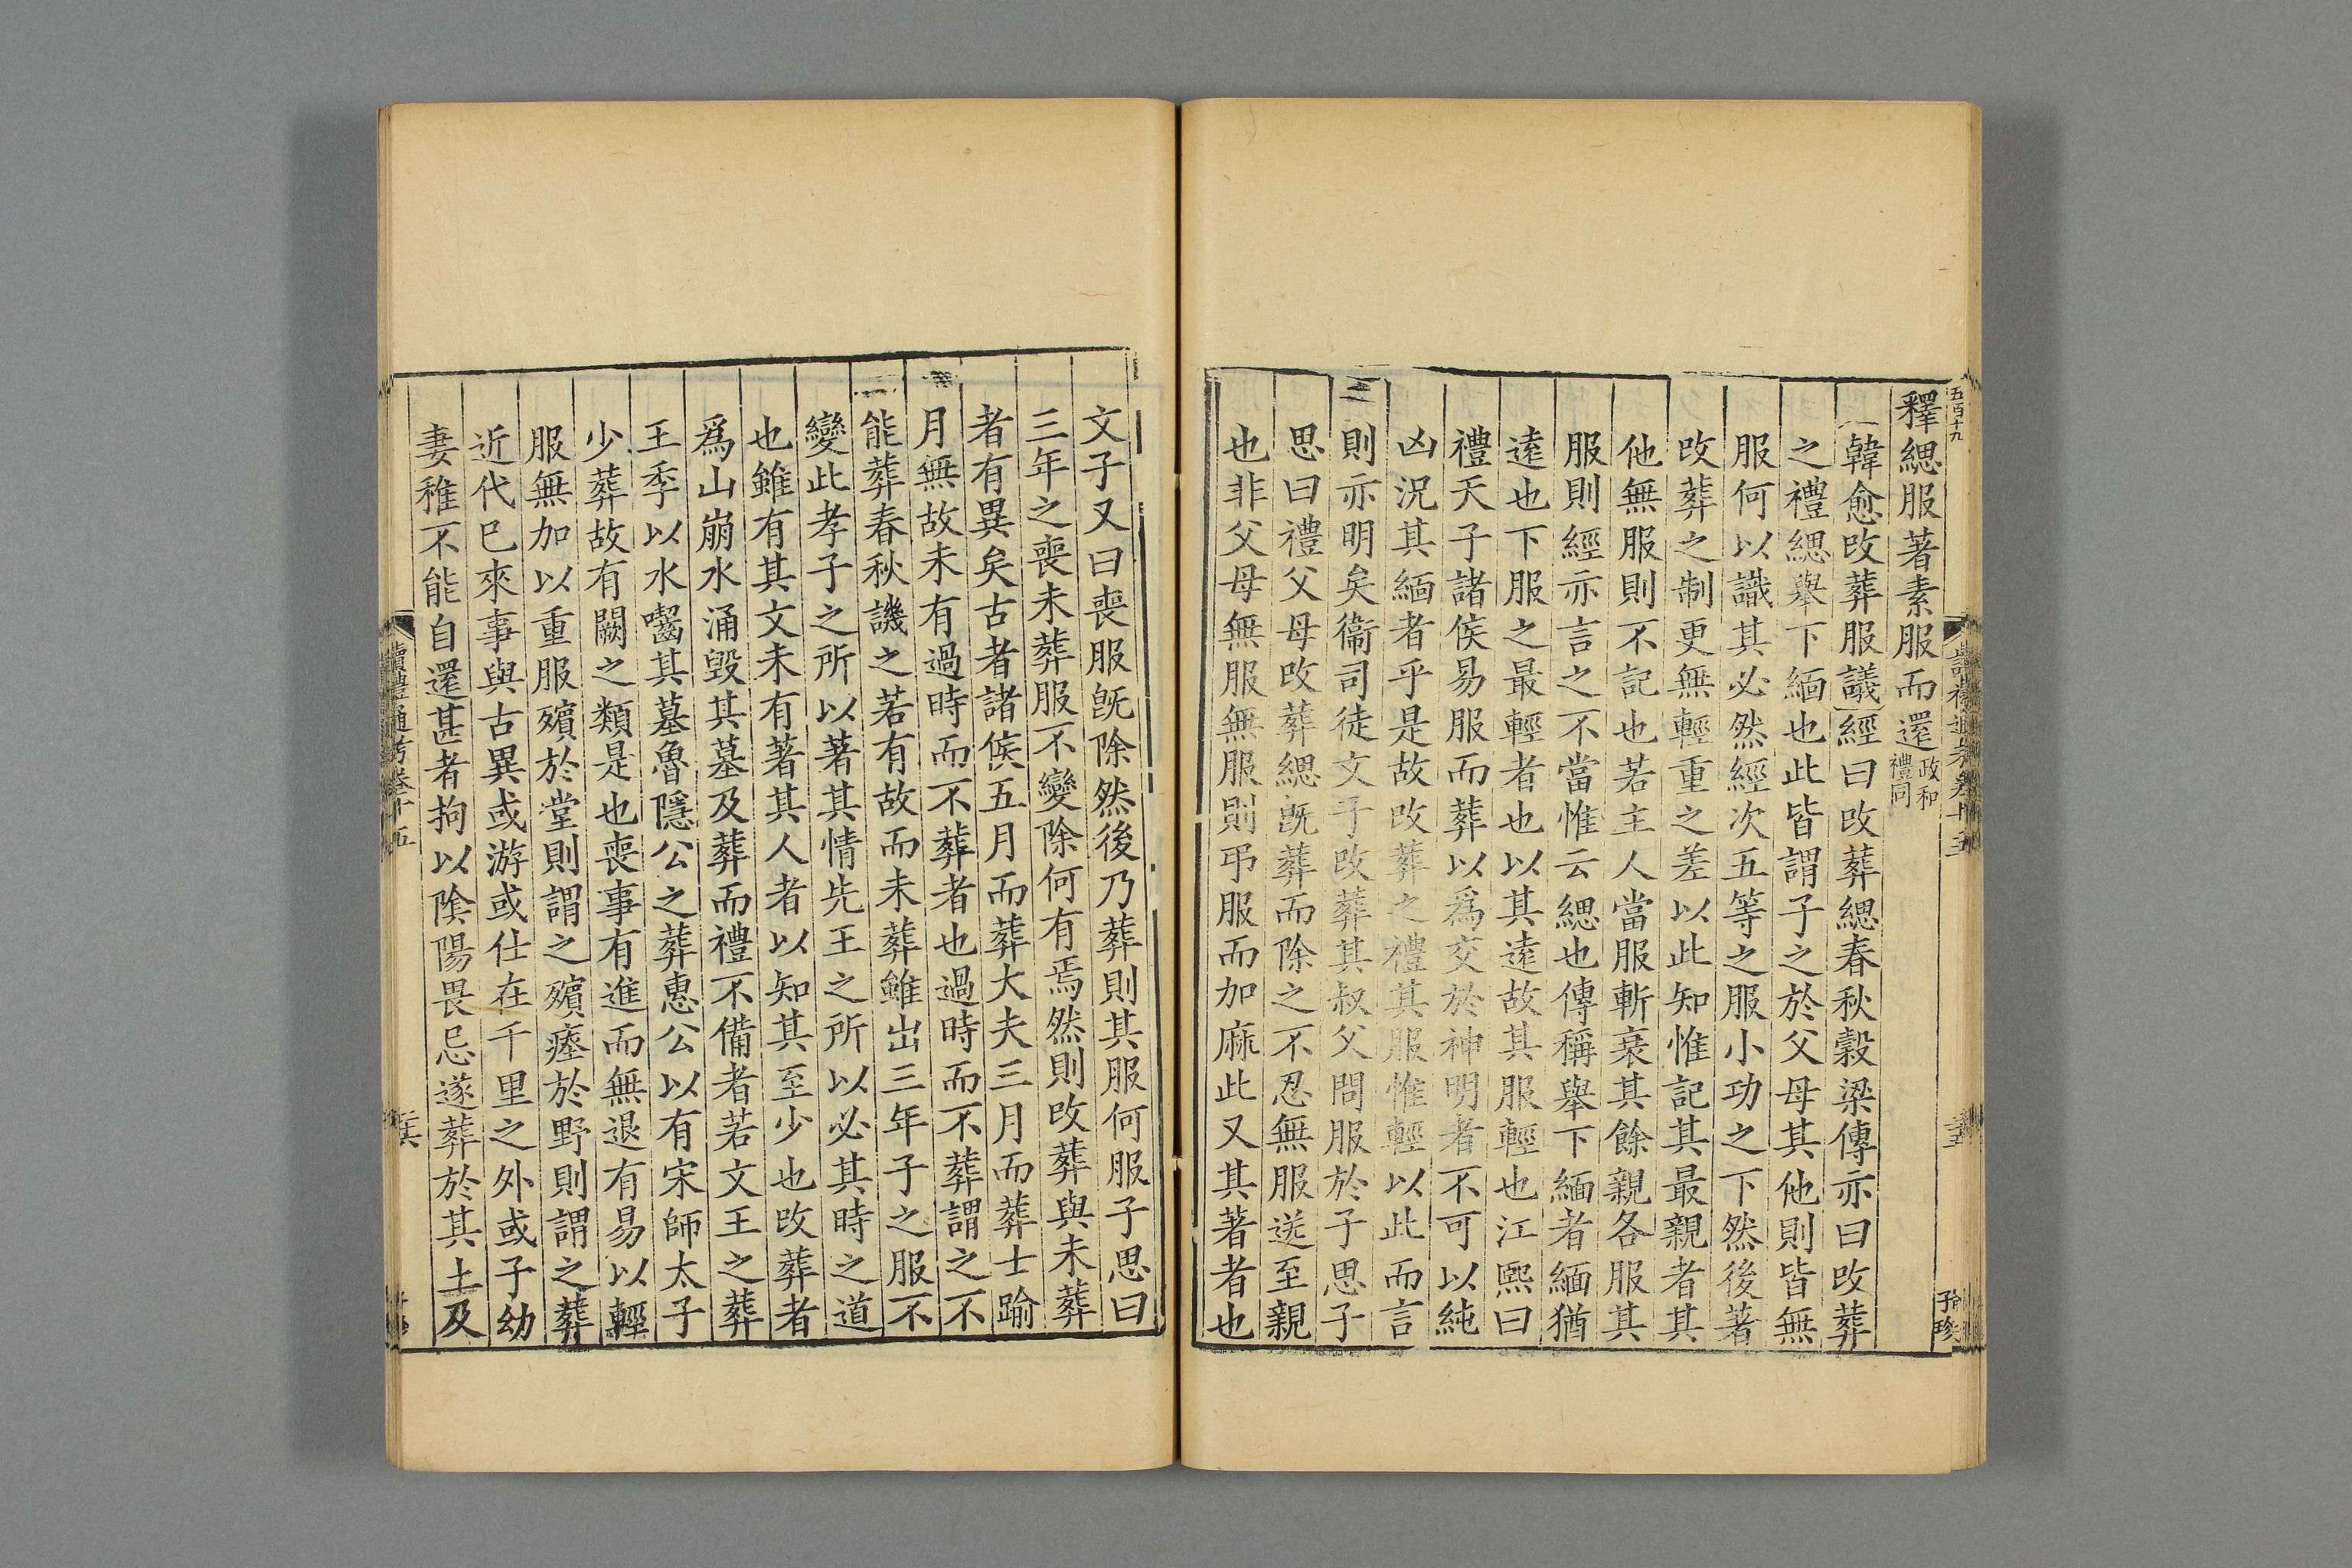 五百十九
釋緦服著素服而還政和禮同
韓愈改葬服議經曰改葬緦春秋穀梁傳亦曰改葬
之禮緦舉下緬也此皆謂子之於父母其他則皆無
服何以識其必然經次五等之服小功之下然後著
改葬之制更無輕重之差以此知惟記其最親者其
他無服則不記也若主人當服斬衰其餘親各服其
服則經亦言之不當惟云緦也傳稱舉下緬者緬猶
遠也下服之最輕者也以其遠故其服輕也江熙曰
禮天子諸侯易服而葬以爲交於神明者不可以純
凶況其緬者乎是故改葬之禮其服惟輕以此而言
則亦明矣衞司徒文子改葬其叔父問服於子思子
思曰禮父母改葬緦旣葬而除之不忍無服送至親
也非父母無服無服則弔服而加麻此又其著者也
文子又曰喪服旣除然後乃葬則其服何服子思曰
三年之喪未葬服不變除何有焉然則改葬與未葬
者有異矣古者諸侯五月而葬大夫三月而葬士踰
月無故未有過時而不葬者也過時而不葬謂之不
能葬春秋譏之若有故而未葬雖出三年子之服不
變此孝子之所以著其情先王之所以必其時之道
也雖有其文未有著其人者以知其至少也改葬者
爲山崩水涌毀其墓及葬而禮不備者若文王之葬
王季以水囓其墓魯隱公之葬惠公以有宋師太子
少葬故有闕之類是也喪事有進而無退有易以輕
服無加以重服殯於堂則謂之殯瘞於野則謂之葬
近代已來事與古異或游或仕在千里之外或子幼
妻稚不能自還甚者拘以陰陽畏忌遂葬於其土及
讀禮通考卷十五